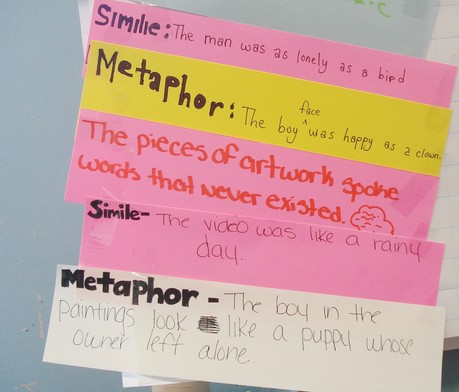 Similie: The man was as lonely as a bird
Metaphor: The boy face was happy as a clown.
The pieces of artwork spoke
words that never existed.
Simile- The video was like a rainy
day.
Metaphor - The boy in the
paintings look like a puppy whose
owner left alone.